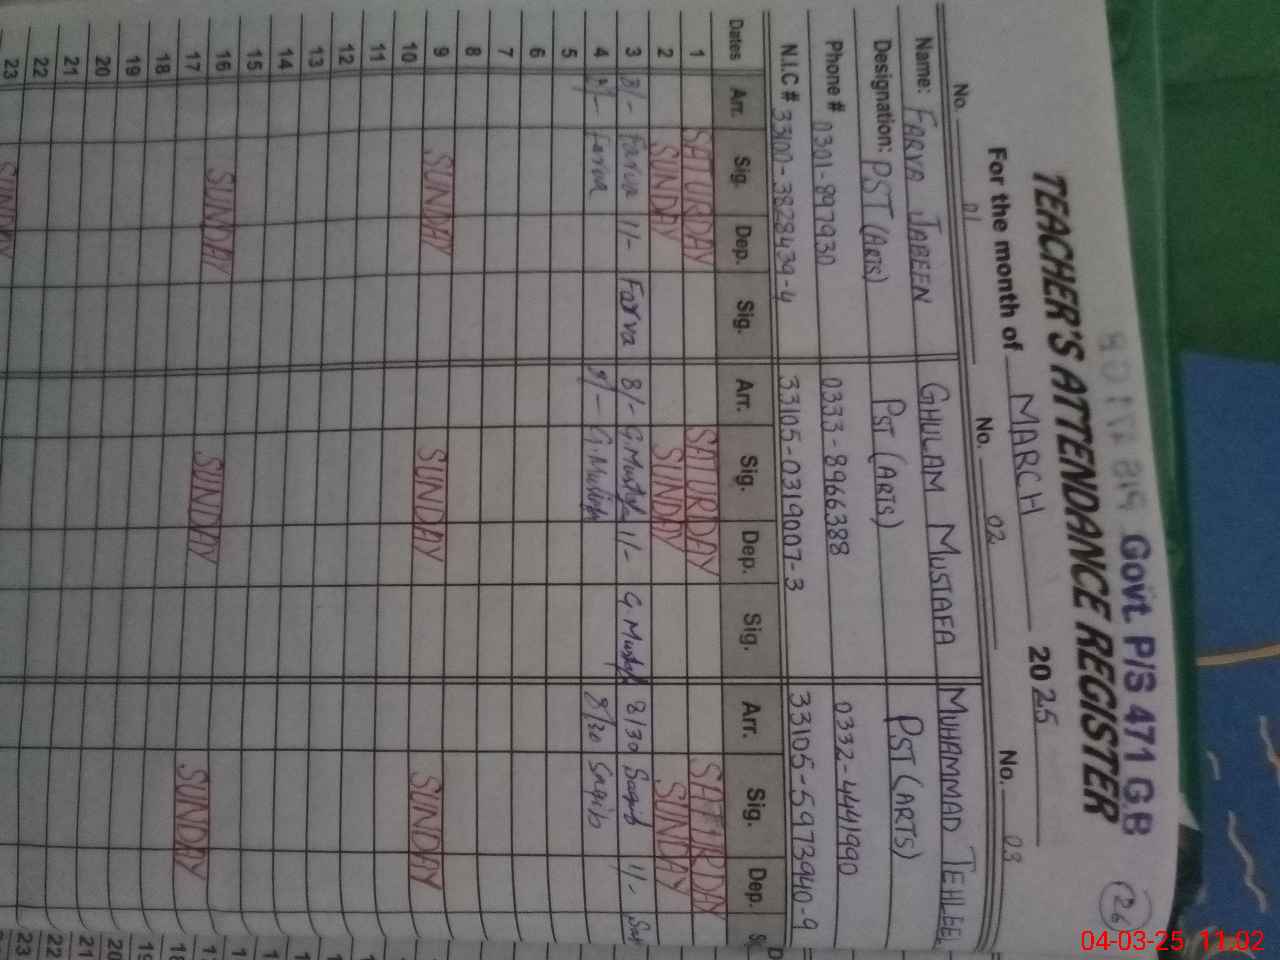 Govt. P/S 471 G.B
TEACHER'S ATTENDANCE REGISTER
26
For the month of MARCH 2025
No. 01 No. 02 No. 03
Name: FARVA JABEEN GHULAM MUSTAFA MUHAMMAD TEHLEEL
Designation: PST (ARTS) PST (ARTS) PST (ARTS)
Phone # 0301-897930 0333-8966388 0332-4441990
N.I.C # 33100-3828439-4 33105-0319007-3 33105-5973940-9
Dates Arr. Sig. Dep. Sig. Arr. Sig. Dep. Sig. Arr. Sig. Dep.
1 SATURDAY SATURDAY SATURDAY
2 SUNDAY SUNDAY SUNDAY
3 8/- Farva 1/- Farva 8/- G.Mustafa 1/- G.Mustafa 8/30 Saqib 1/-
4 8/- Farva 8/- G.Mustafa 8/30 Saqib
5
6
7
8
9 SUNDAY SUNDAY SUNDAY
10
11
12
13
14
15
16 SUNDAY SUNDAY SUNDAY
17
18
19
20
21
22
23 SUNDAY
04-03-25 11:02